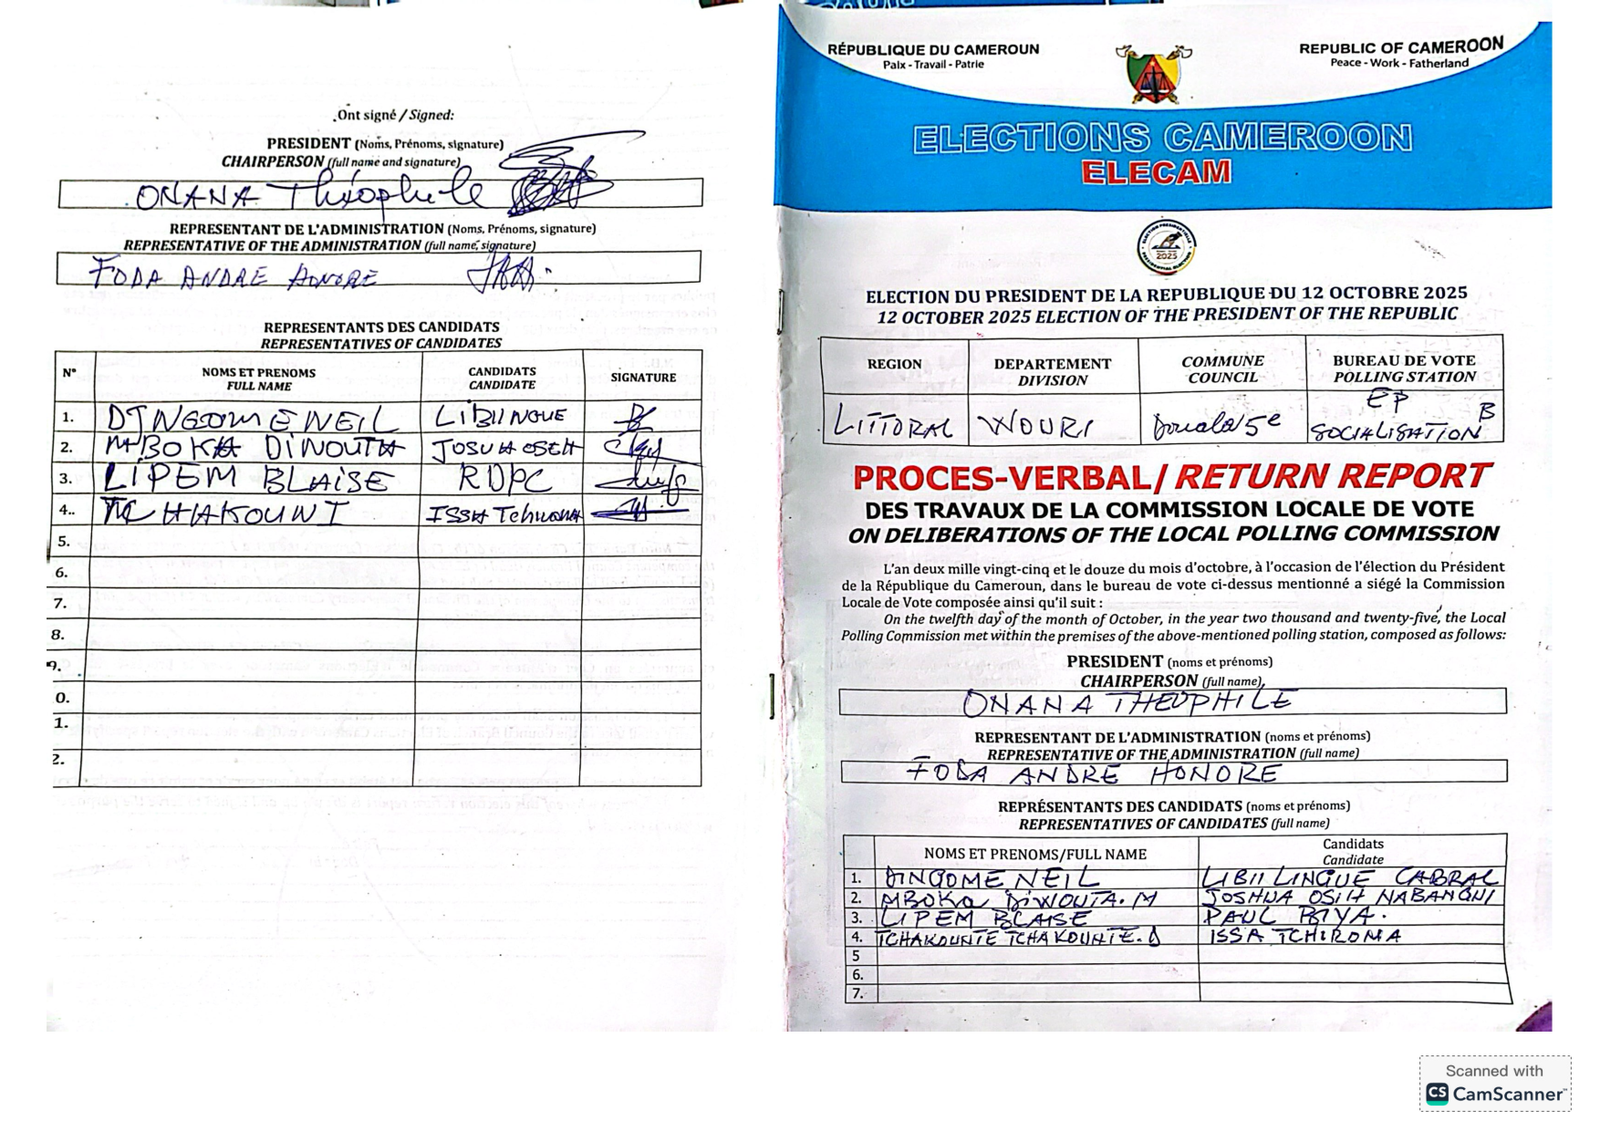 Ont signé / Signed:
PRESIDENT (Noms, Prénoms, signature)
CHAIRPERSON (full name and signature)
ONANA Théophile
REPRESENTANT DE L'ADMINISTRATION (Noms, Prénoms, signature)
REPRESENTATIVE OF THE ADMINISTRATION (full name, signature)
FODA ANDRE HONORE
REPRESENTANTS DES CANDIDATS
REPRESENTATIVES OF CANDIDATES
N° NOMS ET PRENOMS FULL NAME CANDIDATS CANDIDATE SIGNATURE
1. DINGOME NEIL LIBII NGUE
2. MBOKA DINOUTA JOSUA OSIH
3. LIPEM BLAISE RDPC
4.. ISSA Tchiroma
5.
6.
7.
8.
9.
0.
1.
2.
RÉPUBLIQUE DU CAMEROUN
Paix - Travail - Patrie
REPUBLIC OF CAMEROON
Peace - Work - Fatherland
ELECTIONS CAMEROON
ELECAM
2025
ELECTION DU PRESIDENT DE LA REPUBLIQUE DU 12 OCTOBRE 2025
12 OCTOBER 2025 ELECTION OF THE PRESIDENT OF THE REPUBLIC
REGION DEPARTEMENT DIVISION COMMUNE COUNCIL BUREAU DE VOTE POLLING STATION
LITTORAL WOURI Douala 5e EP SOCIALISATION B
PROCES-VERBAL/ RETURN REPORT
DES TRAVAUX DE LA COMMISSION LOCALE DE VOTE
ON DELIBERATIONS OF THE LOCAL POLLING COMMISSION
L'an deux mille vingt-cinq et le douze du mois d'octobre, à l'occasion de l'élection du Président
de la République du Cameroun, dans le bureau de vote ci-dessus mentionné a siégé la Commission
Locale de Vote composée ainsi qu'il suit :
On the twelfth day of the month of October, in the year two thousand and twenty-five, the Local
Polling Commission met within the premises of the above-mentioned polling station, composed as follows:
PRESIDENT (noms et prénoms)
CHAIRPERSON (full name)
ONANA THEOPHILE
REPRESENTANT DE L'ADMINISTRATION (noms et prénoms)
REPRESENTATIVE OF THE ADMINISTRATION (full name)
FODA ANDRE HONORE
REPRÉSENTANTS DES CANDIDATS (noms et prénoms)
REPRESENTATIVES OF CANDIDATES (full name)
NOMS ET PRENOMS/FULL NAME Candidats Candidate
1. DINGOME NEIL LIBII LINGUE CABRAL
2. MBOKA DIWOUTA.M JOSHUA OSIH NABANGNI
3. LIPEM BLAISE PAUL BIYA.
4. TCHAKOUNTE TCHAKOUNTE.D ISSA TCHIROMA
5
6.
7.
Scanned with
CS CamScanner